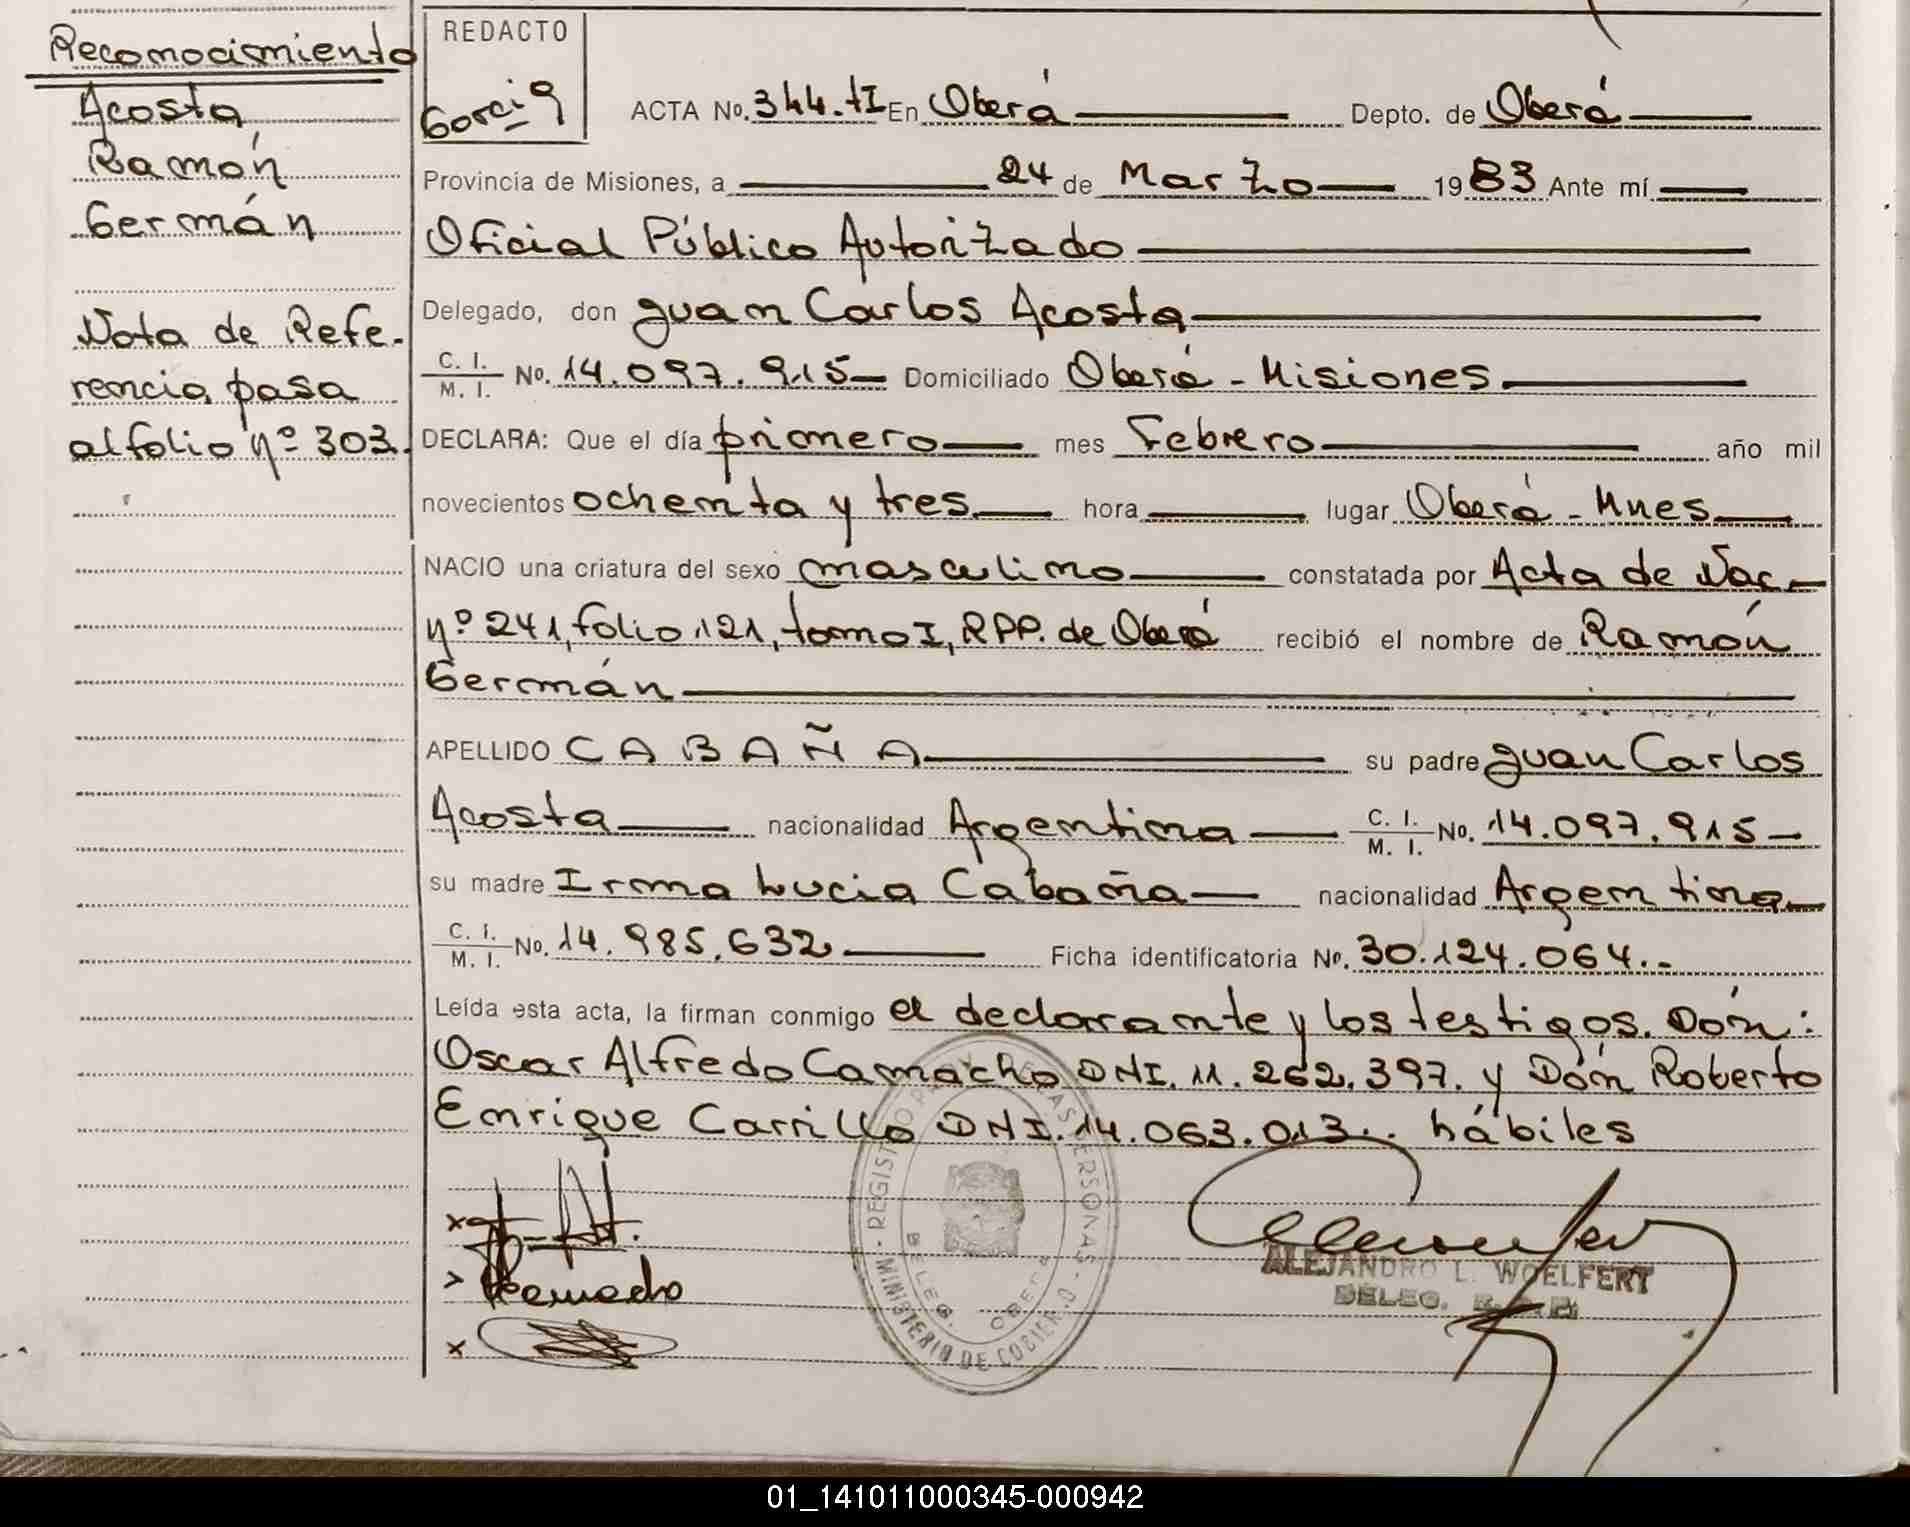 Reconocimiento
Acosta
Ramón
Germán
Nota de Refe-
rencia pasa
al folio nº 303.
REDACTO
García
ACTA No. 344. tI En Oberá Depto. de Oberá
Provincia de Misiones, a 24 de Marzo 1983 Ante mí
Oficial Público Autorizado
Delegado, don Juan Carlos Acosta
C. I. / M. I. No. 14.097.915 Domiciliado Oberá - Misiones
DECLARA: Que el día primero mes Febrero año mil
novecientos ochenta y tres hora lugar Oberá - Mnes
NACIO una criatura del sexo masculino constatada por Acta de Nac.
nº 241, folio 121, tomo I, RPP. de Oberá recibió el nombre de Ramón
Germán
APELLIDO CABAÑA su padre Juan Carlos
Acosta nacionalidad Argentina C. I. / M. I. No. 14.097.915
su madre Irma Lucia Cabaña nacionalidad Argentina
C. I. / M. I. No. 14.985.632 Ficha identificatoria No. 30.124.064.-
Leída esta acta, la firman conmigo el declarante y los testigos. Dón:
Oscar Alfredo Camacho DNI. 11.262.397. y Dón Roberto
Enrique Carrillo DNI. 14.063.013.. hábiles
REGISTRO PERSONAS
MINISTERIO DE GOBIERNO
DELEG. OBERA
ALEJANDRO L. WOELFERT
DELEG.
01_141011000345-000942